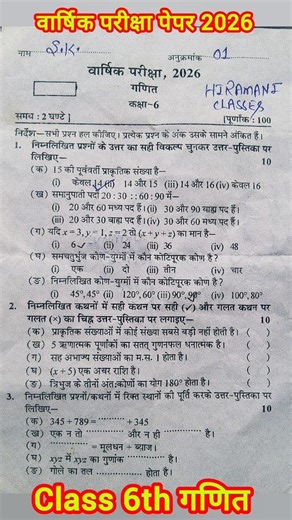 वार्षिक परीक्षा पेपर 2026
नाम S.K.
अनुक्रमांक 01
वार्षिक परीक्षा, 2026
गणित
कक्षा-6
HIRAMANI
CLASSES
समय : 2 घण्टे ]
[पूर्णांक : 100
निर्देश—सभी प्रश्न हल कीजिए। प्रत्येक प्रश्न के अंक उसके सामने अंकित हैं।
1. निम्नलिखित प्रश्नों के उत्तर का सही विकल्प चुनकर उत्तर-पुस्तिका पर
लिखिए— 10
(क) 15 की पूर्ववर्ती प्राकृतिक संख्या है—
(i) केवल 14 (ii) 14 और 15 (iii) 14 और 16 (iv) केवल 16
(ख) समानुपाती पदों 20 : 30 : : 60 : 90 में—
(i) 20 और 60 मध्य पद हैं। (ii) 30 और 90 बाह्य पद हैं।
(iii) 20 और 30 बाह्य पद हैं। (iv) 30 और 60 मध्य पद हैं।
(ग) यदि x = 3, y = 1, z = 2 तो (x + y + z) का मान है—
(i) 6 (ii) 24 (iii) 36 (iv) 48
(घ) समचतुर्भुज कोण-युग्मों में कौन कोटिपूरक कोण है?
(i) एक (ii) दो (iii) तीन (iv) चार
(ङ) निम्नलिखित कोण-युग्मों में कौन कोटिपूरक कोण है?
(i) 45°, 45° (ii) 120°, 60° (iii) 90°, 90° (iv) 100°, 80°
2. निम्नलिखित कथनों में सही कथन पर सही (✓) और गलत कथन पर
गलत (×) का चिह्न उत्तर-पुस्तिका पर लगाइए— 10
(क) प्राकृतिक संख्याओं में कोई संख्या सबसे बड़ी नहीं होती है। ( )
(ख) 5 ऋणात्मक पूर्णांकों का सतत् गुणनफल धनात्मक है। ( )
(ग) सह अभाज्य संख्याओं का म.स. 1 होता है। ( )
(घ) (x + 5) एक अचर राशि है। ( )
(ङ) त्रिभुज के तीनों अंतःकोणों का योग 180° होता है। ( )
3. निम्नलिखित प्रश्नों/कथनों में रिक्त स्थानों की पूर्ति करके उत्तर-पुस्तिका पर
लिखिए— 10
(क) 345 + 789 = ............ + 345
(ख) एक न तो ............ और न ही ............ है।
(ग) ............ = मूलधन + ब्याज।
(घ) xyz में xyz का गुणांक ............ है।
(ङ) गोले का तल ............ होता है।
Class 6th गणित